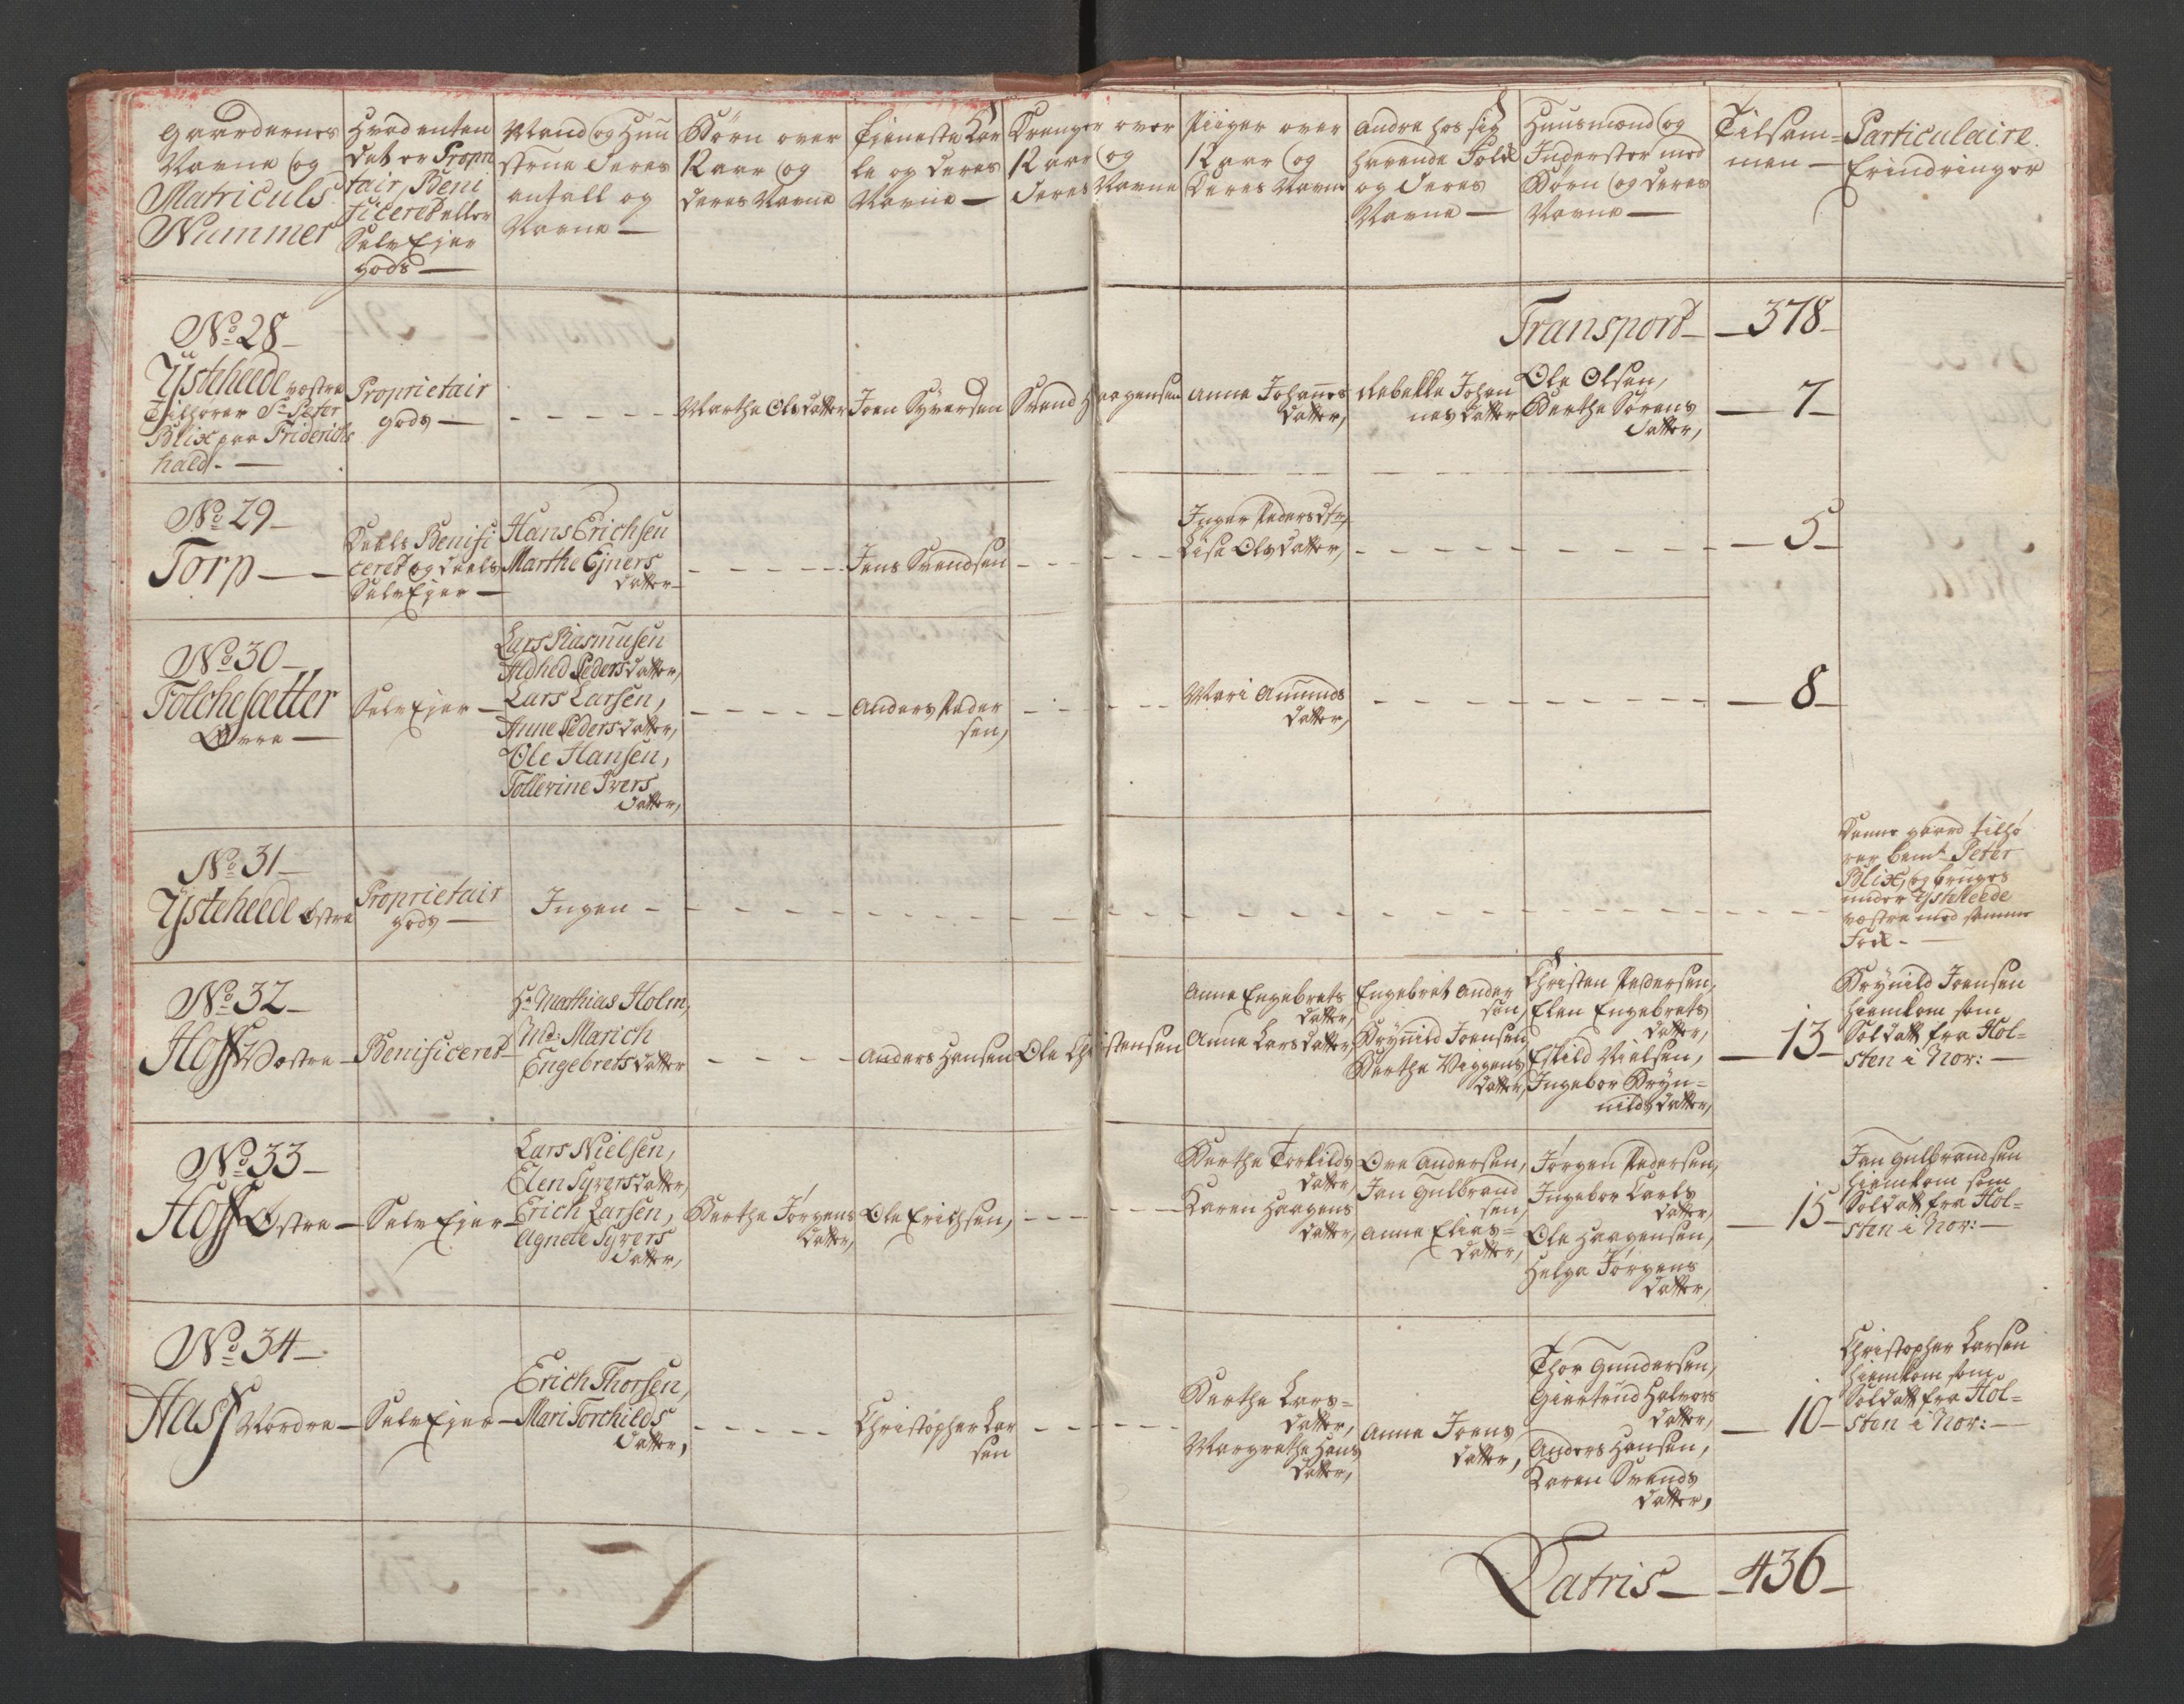 Gaardernes
Navne og
Matriculs
Nummer
Hvad enten
det er Propri
tair, Beni
ficeret eller
SelvEjer
gods —
Mand og Huu
struе deres
antall og
Navne —
Børn over
12 aar og
deres Navne
Tieneste Kar
le og deres
Navne —
Drenge over
12 aar og
deres Navne
Piiger over
12 aar og
deres Navne
Andre hos sig
havende Folk
og deres
Navne —
Huusmænd og
Inderster med
Børn og deres
Navne —
Tilsam=
men —
Particulaire
Erindringer
Transport — 378 —
No 28 —
Ysteheede vestre
Tilhører Sr Peter
Blix paa Friderichs
hald. —
Proprietair
gods —
Marthe Olsdatter
Joen Syversen
Svend Haagensen
Anne Johannes
datter,
Rebekke Johan
nesdatter
Ole Olsen,
Berthe Sørens
datter,
— 7 —
No 29 —
Torp —
Deels Benifi
ceret og deels
SelvEjer —
Hans Erichsen
Marthe Ejners
datter —
Jens Svendsen
Inger Pedersdtr,
Lise Olsdatter,
— 5 —
No 30 —
Tolchesætter
Øvre —
SelvEjer —
Lars Rasmusen
Aldhed Pedersdatter,
Lars Larsen,
Anne Pedersdatter,
Ole Hansen,
Tollerine Ivers
datter,
Anders Peder
sen,
Mari Amunds
datter,
— 8 —
No 31 —
Ysteheede Østre
Proprietair
gods —
Ingen —
Denne gaard tilhø
rer bemte Peter
Blix, og bruges
under Ysteheede
vestre med samme
Folk. —
No 32 —
Hoff Vestre —
Beneficeret
Hr Mathias Holm,
Md: Marich
Engebretsdatter
Anders Hansen
Ole Christensen
Anne Engebrets
datter,
Anne Larsdatter,
Engebret Ander
sen,
Brynild Joensen
Berthe Viggens
datter,
Christen Pedersen,
Elen Engebrets
datter,
Eskild Nielsen,
Ingebor Bryn=
nildsdatter,
— 13 —
Brynild Joensen
hiemkom som
Soldatt fra Hol=
sten i Nov: —
No 33 —
Hoff Østre —
SelvEjer —
Lars Nielsen,
Elen Syversdatter,
Erich Larsen,
Agnete Syvers
datter,
Berthe Jørgens
datter,
Ole Erichsen,
Berthe Torkilds
datter,
Karen Haagens
datter,
Ove Andersen,
Jan Gulbrand
sen,
Anne Elias=
datter,
Jørgen Pedersen,
Ingebor Carls
datter,
Ole Haagensen,
Helga Jørgens
datter,
— 15 —
Jan Gulbrandsen
hiemkom som
Soldatt fra Hol=
sten i Nov: —
No 34 —
Hass Nordre —
SelvEjer —
Erich Thorsen,
Mari Torchilds
datter,
Christopher Lar
sen
Berthe Lars=
datter,
Margrethe Hans
datter,
Anne Joens
datter,
Thor Gundersen,
Giertrud Halvors
datter,
Anders Hansen,
Karen Svends
datter,
— 10 —
Christopher Larsen
hiemkom som
Soldatt fra Hol=
sten i Nov: —
Latris — 436 —